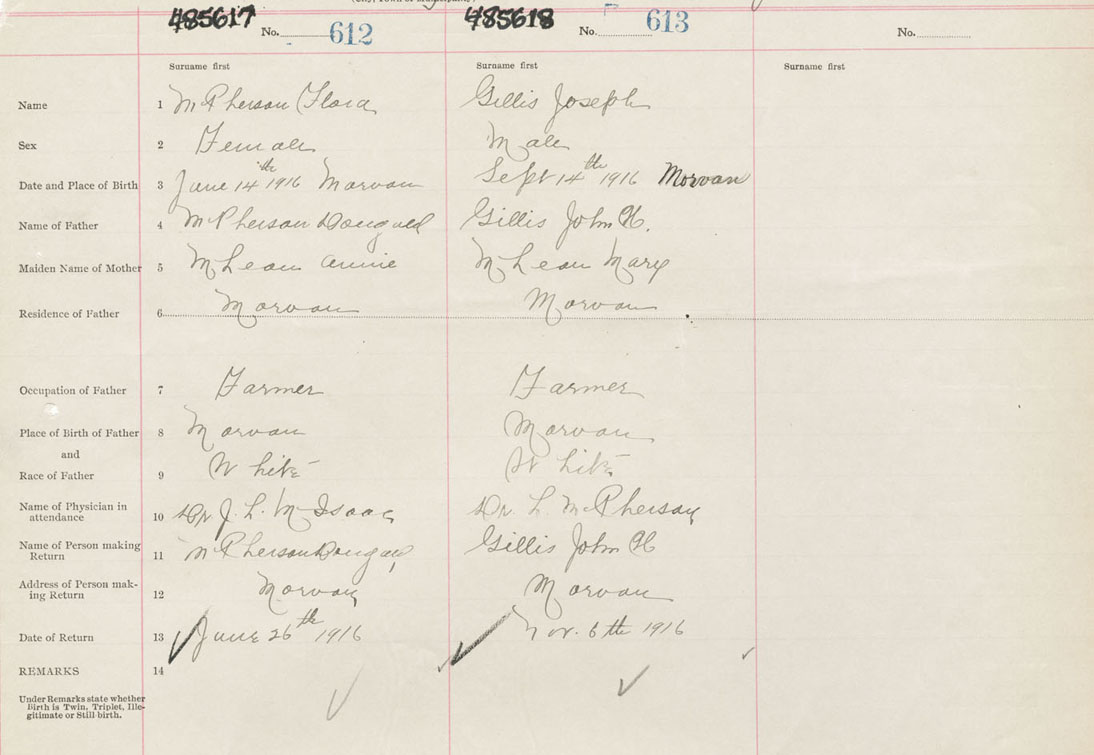 485617 485618
No. 612 No. 613 No.
Surname first Surname first Surname first
Name 1 McPherson Flora Gillis Joseph
Sex 2 Female Male
Date and Place of Birth 3 June 14th 1916 Morvan Sept 14th 1916 Morvan
Name of Father 4 McPherson Dougald Gillis John H.
Maiden Name of Mother 5 McLean Annie McLean Mary
Residence of Father 6 Morvan Morvan
Occupation of Father 7 Farmer Farmer
Place of Birth of Father 8 Morvan Morvan
and
Race of Father 9 White White
Name of Physician in
attendance 10 Dr J. L. McIsaac Dr. L. McPherson
Name of Person making
Return 11 McPherson Dougald Gillis John H
Address of Person mak-
ing Return 12 Morvan Morvan
Date of Return 13 June 26th 1916 Nov. 6th 1916
REMARKS 14
Under Remarks state whether
Birth is Twin, Triplet, Ille-
gitimate or Still birth.